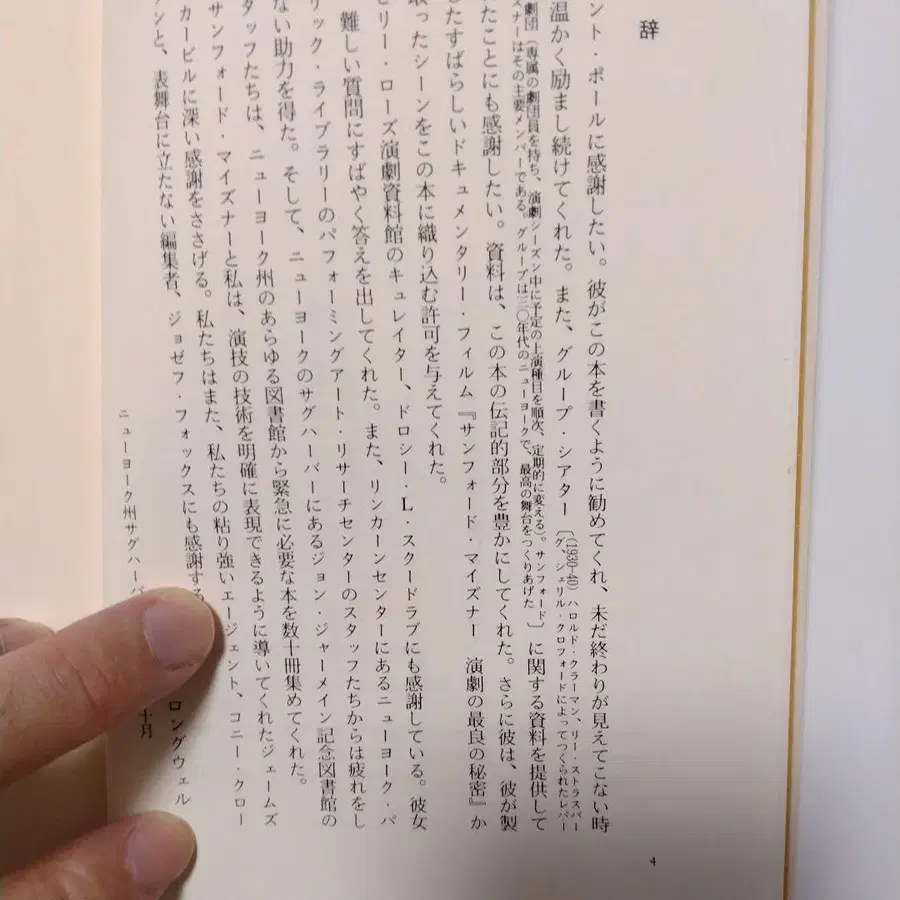 辞
ント・ポールに感謝したい。彼がこの本を書くように勧めてくれ、未だ終わりが見えてこない時
温かく励まし続けてくれた。また、グループ・シアター〔(1930–40)ハロルド・クラーマン、リー・ストラスバーグ、シェリル・クロフォードによってつくられたレパー
劇団(専属の劇団員を持ち、演劇シーズン中に予定の上演種目を順次、定期的に変える)。サンフォード
ズナーはその主要メンバーである。グループは三〇年代のニューヨークで、最高の舞台をつくりあげた〕に関する資料を提供して
たことにも感謝したい。資料は、この本の伝記的部分を豊かにしてくれた。さらに彼は、彼が製
したすばらしいドキュメンタリー・フィルム『サンフォード・マイズナー 演劇の最良の秘密』か
取ったシーンをこの本に織り込む許可を与えてくれた。
ゼリー・ローズ演劇資料館のキュレイター、ドロシー・L・スクードラブにも感謝している。彼女
難しい質問にすばやく答えを出してくれた。また、リンカーンセンターにあるニューヨーク・パ
リック・ライブラリーのパフォーミングアート・リサーチセンターのスタッフたちからは疲れをし
ない助力を得た。そして、ニューヨークのサグハーバーにあるジョン・ジャーメイン記念図書館の
タッフたちは、ニューヨーク州のあらゆる図書館から緊急に必要な本を数十冊集めてくれた。
サンフォード・マイズナーと私は、演技の技術を明確に表現できるように導いてくれたジェームズ
カービルに深い感謝をささげる。私たちはまた、私たちの粘り強いエージェント、コニー・クロー
アンと、表舞台に立たない編集者、ジョゼフ・フォックスにも感謝する
ロングウェル
ニューヨーク州サグハーバ
十月
4